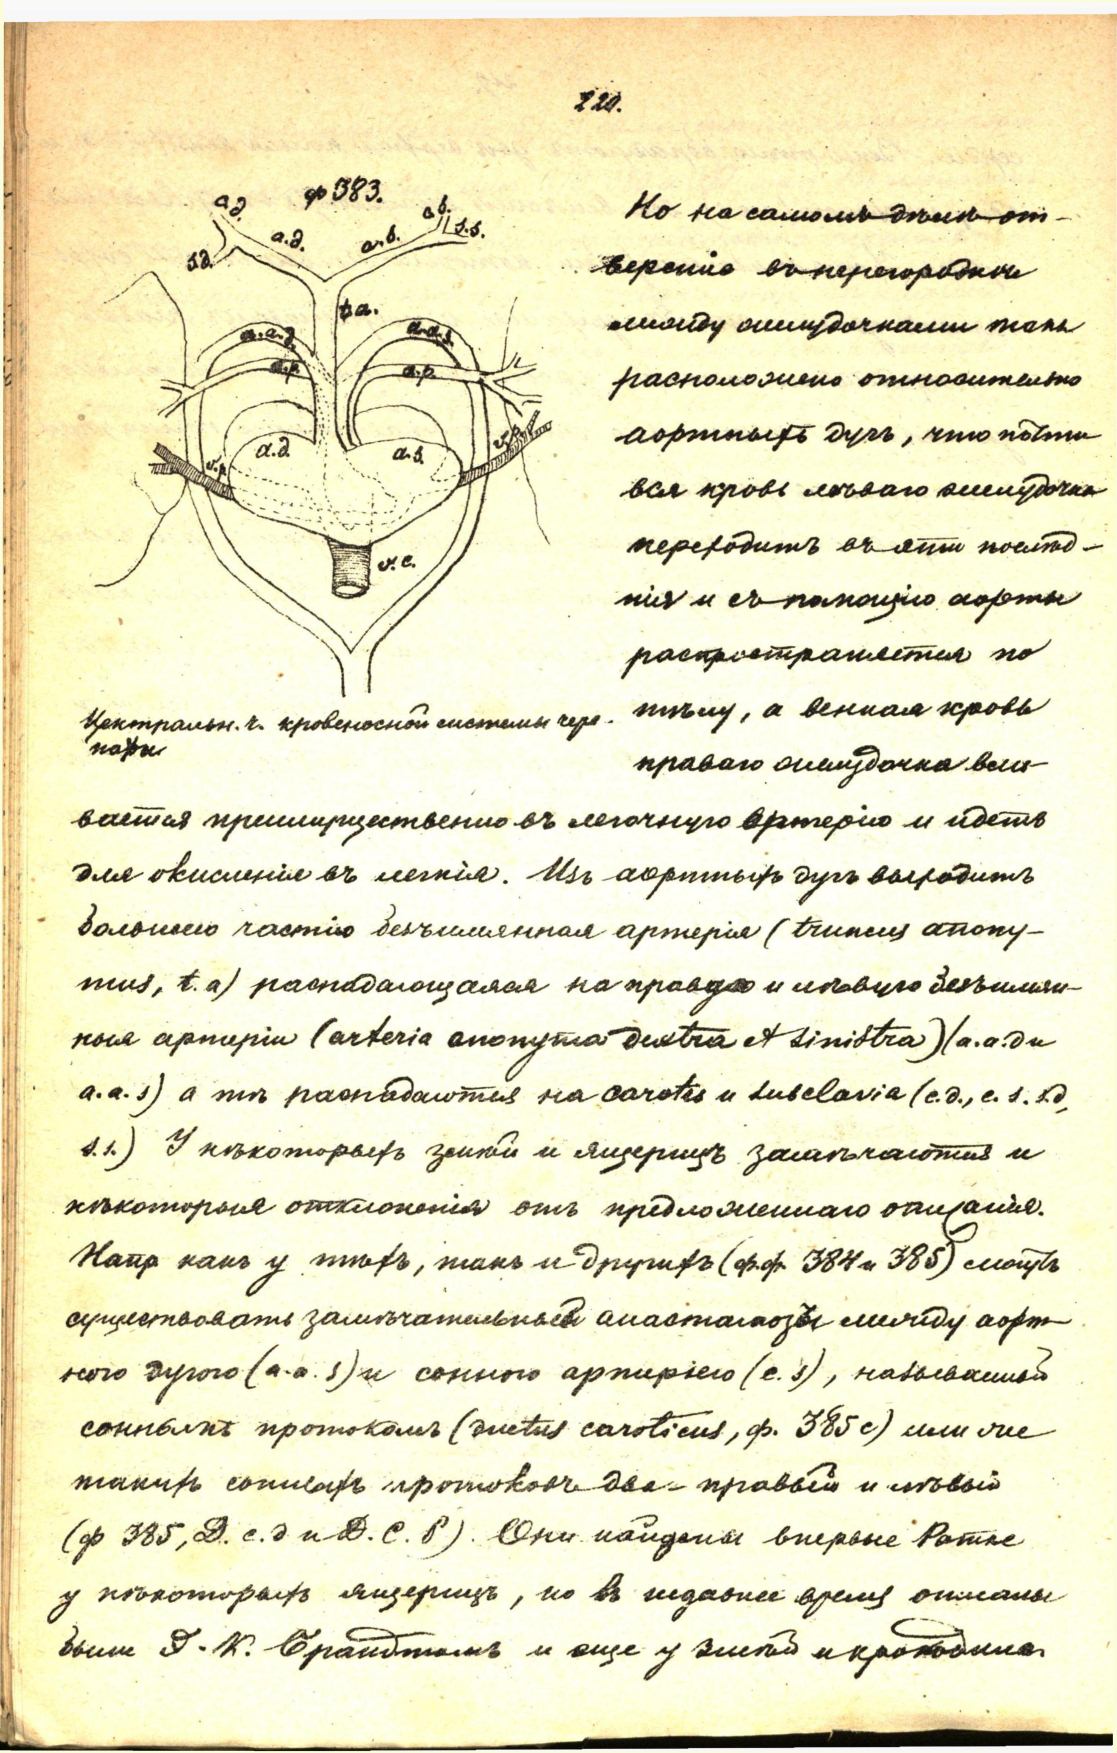 220.
ф 383.
a.d. a.b.
s.s.
s.d. a.d. a.b.
t.a.
a.a.d. a.a.s.
a.p. a.p.
a.d. a.s.
v.p. v.p.
v.c.
Центральн. ч. кровеносной системы чере-
пахи
Но на самомъ дѣлѣ от-
верстіе въ перегородкѣ
между желудочками такъ
расположено относительно
аортныхъ дугъ, что почти
вся кровь лѣваго желудочка
переходитъ въ эти послѣд-
нія и съ помощію аорты
распространяется по
тѣлу, а венная кровь
праваго желудочка вли-
вается преимущественно въ легочную артерію и идетъ
для окисленія въ легкія. Изъ аортныхъ дугъ выходитъ
большею частію безъимянная артерія (truncus anony-
mus, t.a) распадающаяся на правую и лѣвую безъимян-
ныя артеріи (arteria anonyma dextra et sinistra) (a.a.d и
a.a.s) а тѣ распадаются на carotis и subclavia (c.d., c.s. s.d,
s.s.) У нѣкоторыхъ змѣй и ящерицъ замѣчаются и
нѣкоторыя отклоненія отъ предложеннаго описанія.
Напр какъ у тѣхъ, такъ и другихъ (ф.ф. 384 и 385) могутъ
существовать замѣчательный анастамозъ между аорт-
ною дугою (a.a.s) и сонною артеріею (c.s), называемый
соннымъ протокомъ (ductus caroticus, ф. 385 c) или же
такихъ сонныхъ протоковъ два - правый и лѣвый
(ф 385, D.c.d и D.C.s). Они найдены впервые Ратке
у нѣкоторыхъ ящерицъ, но въ недавнее время описаны
были Э.К. Брандтомъ и еще у змѣй и крокодила.